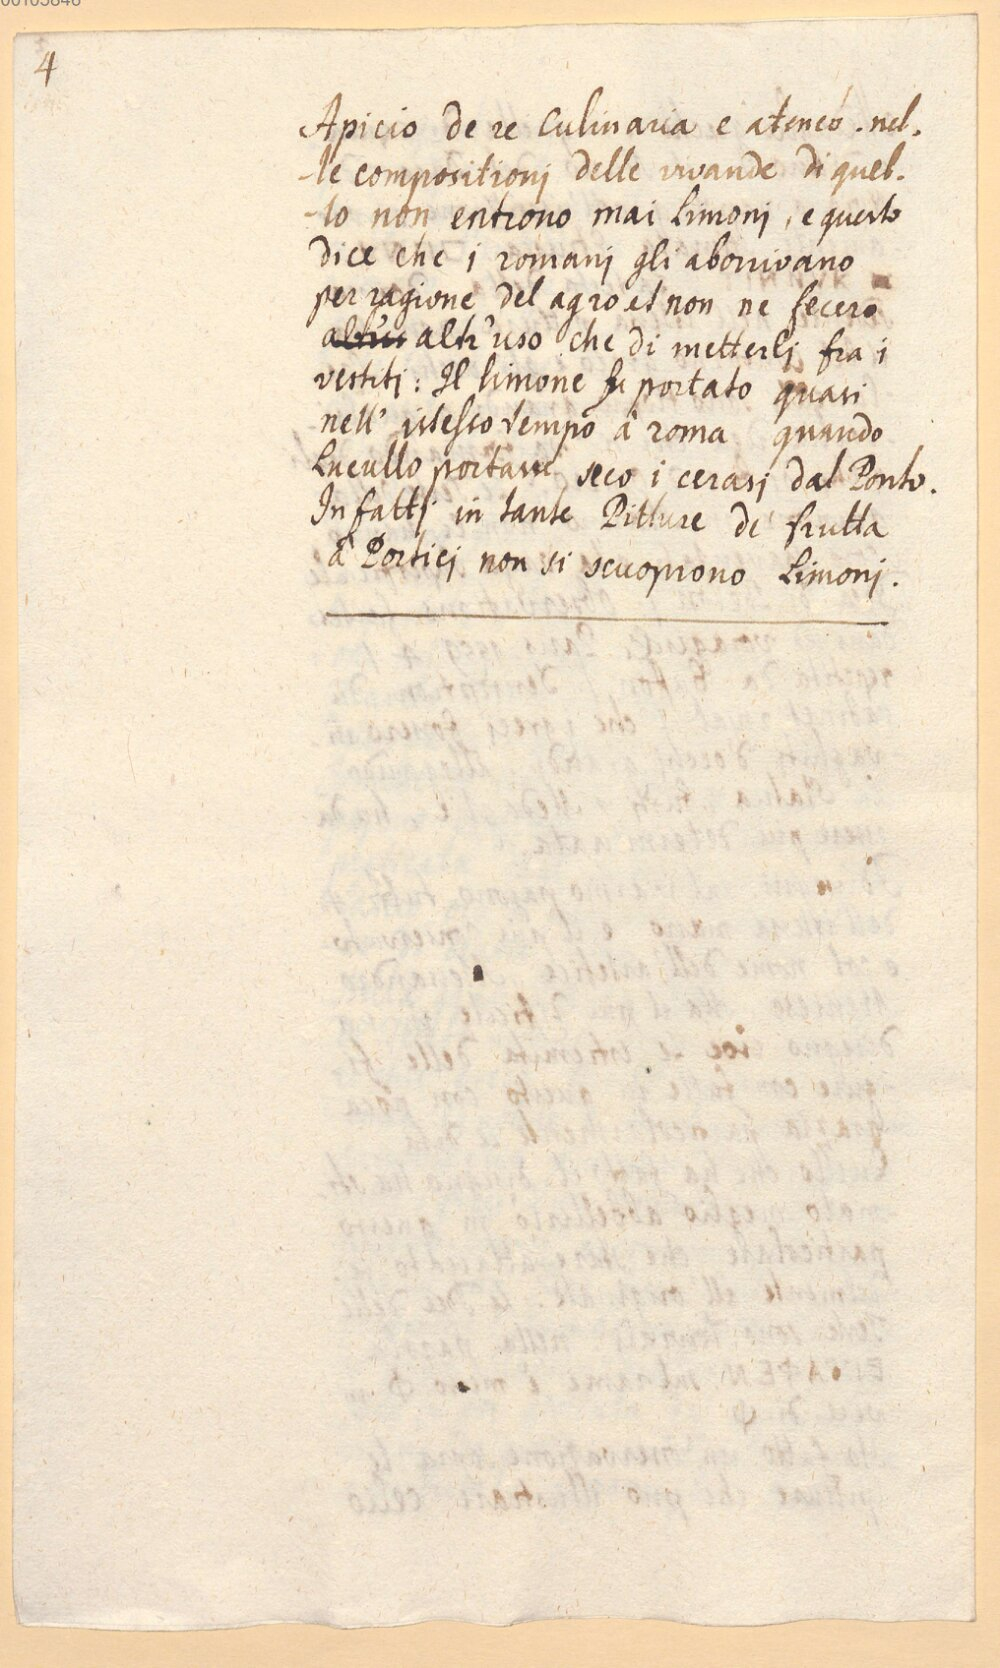 00105846
4
Apicio de re Culinaria e ateneo. nel.
-le compositionj delle vivande di quel-
-lo non entrono mai Limonj, e questo
dice che i romanj gli aborrivano
per ragione del agro et non ne fecero
altr'uso che di metterlj fra i
vestitj: Il limone fu portato quasi
nell' istesso tempo à roma quando
Lucullo portava seco i cerasj dal Ponto.
In fattj in tante Pitture de' frutta
à Porticj non si scuoprono Limonj.